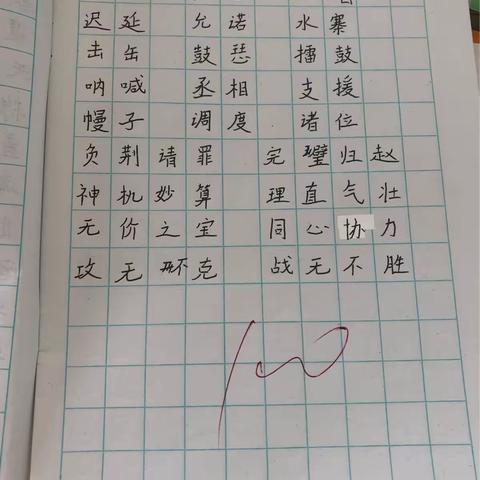 迟延 允诺 水寨
击缶 鼓瑟 擂鼓
呐喊 丞相 支援
幔子 调度 诸位
负荆请罪 完璧归赵
神机妙算 理直气壮
无价之宝 同心协力
攻无不克 战无不胜
100